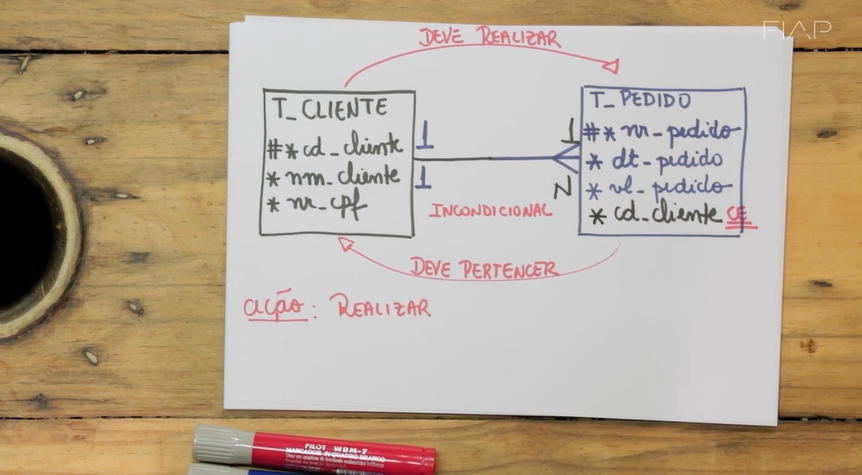 FIAP
DEVE REALIZAR
T_CLIENTE
#* cd_cliente
* nm_cliente
* nr_cpf
1
1
1
N
INCONDICIONAL
T_PEDIDO
#* nr_pedido
* dt_pedido
* vl_pedido
* cd_cliente CE
DEVE PERTENCER
AÇÃO: REALIZAR
PILOT WBM-7
MARCADOR P/QUADRO BRANCO